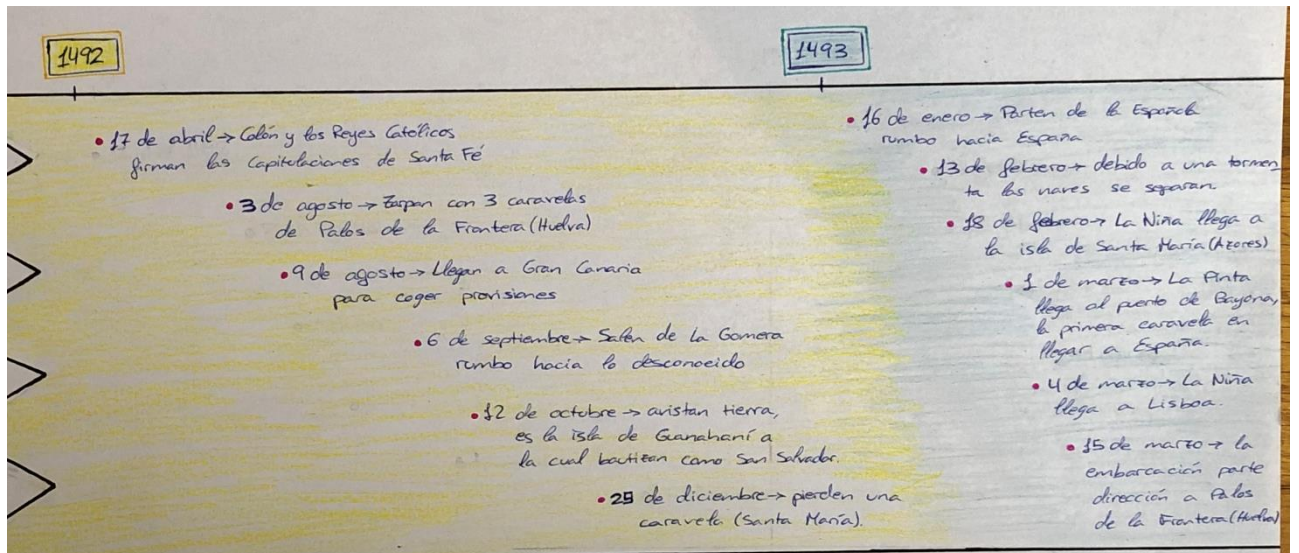 1492
1493
• 17 de abril → Colón y los Reyes Católicos
firman las Capitulaciones de Santa Fé
• 3 de agosto → Zarpan con 3 caravelas
de Palos de la Frontera (Huelva)
• 9 de agosto → Llegan a Gran Canaria
para coger provisiones
• 6 de septiembre → Salen de La Gomera
rumbo hacia lo desconocido
• 12 de octubre → avistan tierra,
es la isla de Guanahaní a
la cual bautizan como San Salvador.
• 25 de diciembre → pierden una
caravela (Santa María).
• 16 de enero → Parten de la Española
rumbo hacia España
• 13 de febrero → debido a una tormen
ta las naves se separan.
• 18 de febrero → La Niña llega a
la isla de Santa María (Azores)
• 1 de marzo → La Pinta
llega al puerto de Bayona,
la primera caravela en
llegar a España.
• 4 de marzo → La Niña
llega a Lisboa.
• 15 de marzo → la
embarcación parte
dirección a Palos
de la Frontera (Huelva)